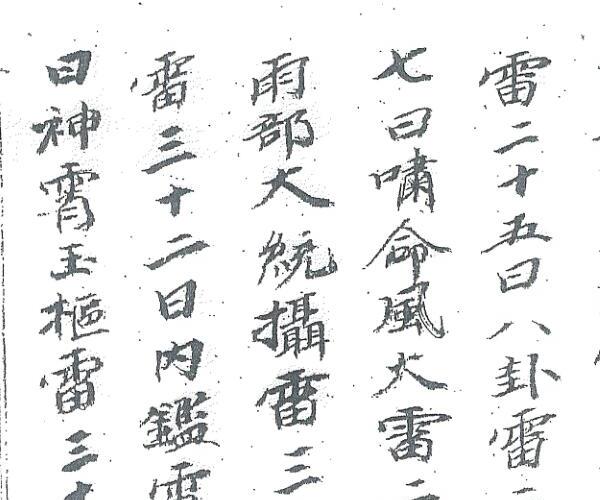 雷二十五曰八卦雷二
七曰嘯命風大雷二
雨部大統攝雷三
雷三十二曰內鑑雷
曰神霄玉樞雷三十